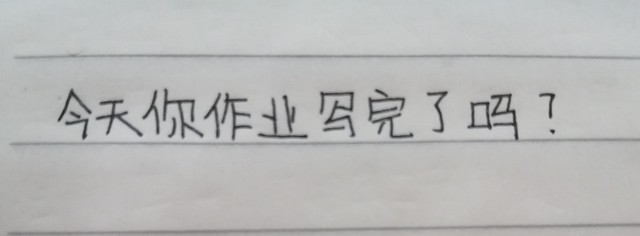 今天你作业写完了吗？